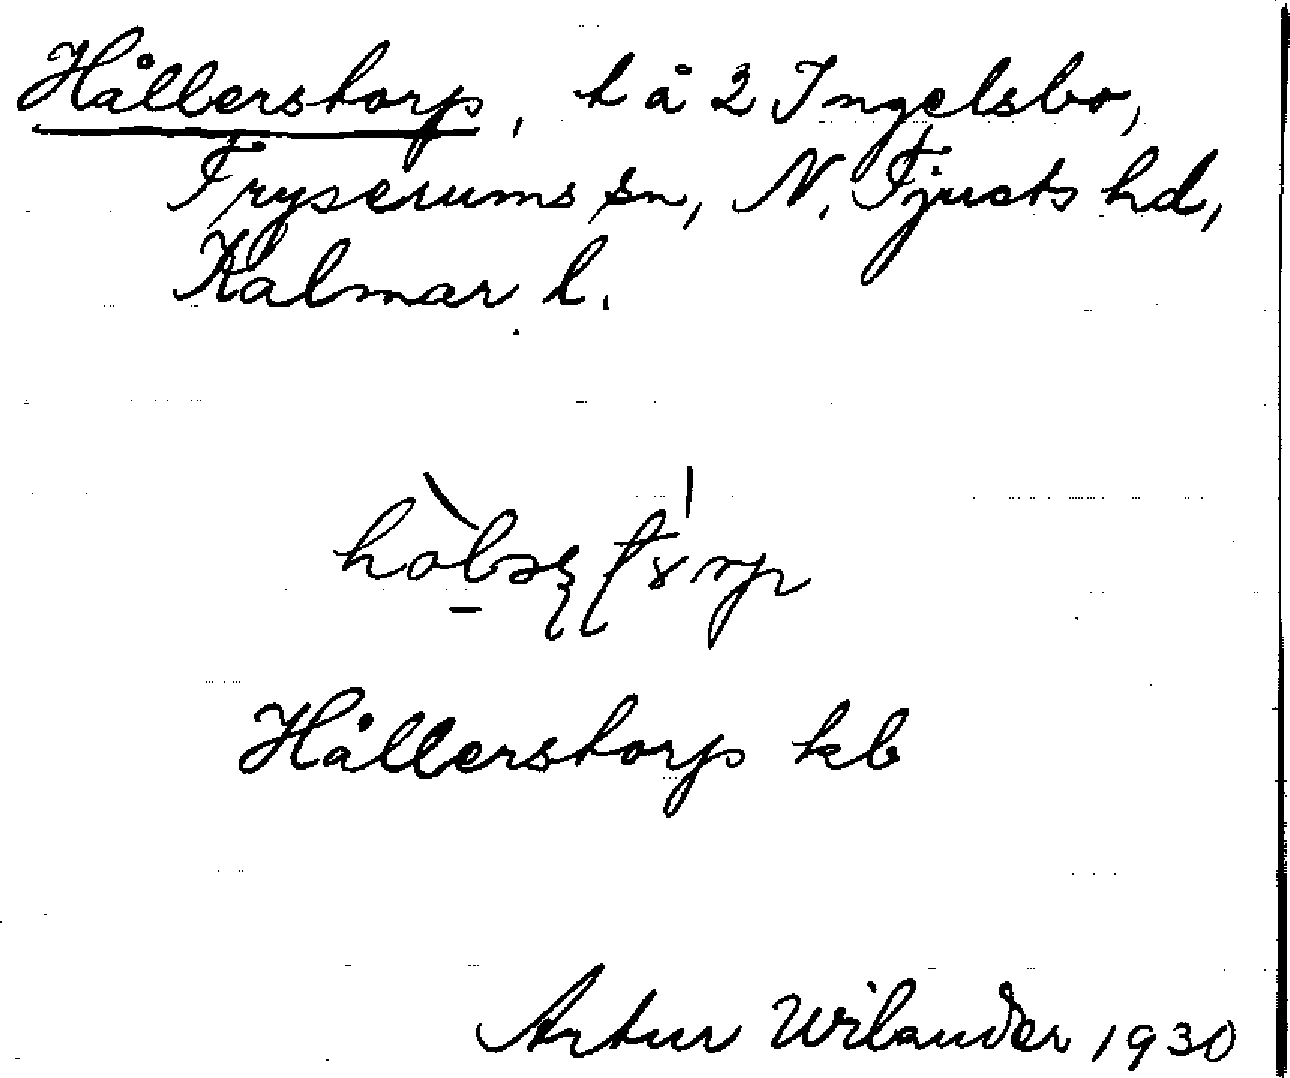 Hållerstorp, t å 2 Ingelsbo,
Tryserums sn, N. Tjusts hd,
Kalmar l.
Hållerstorp kb
Artur Wilander 1930